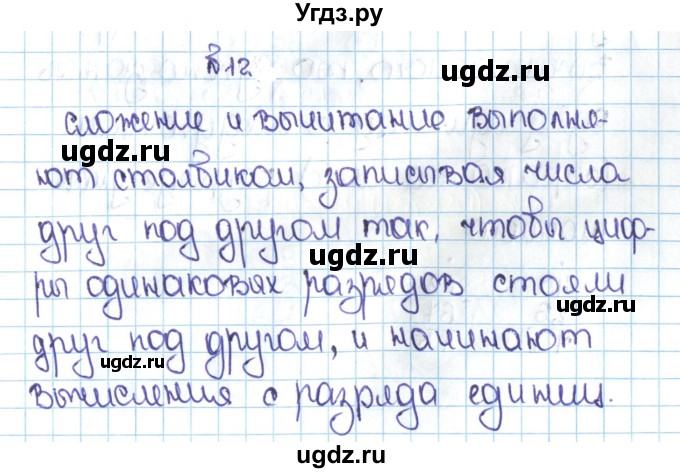 Угдз.ру
№12
ugdz.ru
сложение и вычитание выполня-
ugdz.ru
ют столбиком, записывая числа
ugdz.ru
друг под другом так, чтобы циф-
ugdz.ru
ры одинаковых разрядов стояли
ugdz.ru
друг под другом, и начинают
ugdz.ru
ugdz.ru
вычисления с разряда единиц.
ugdz.ru